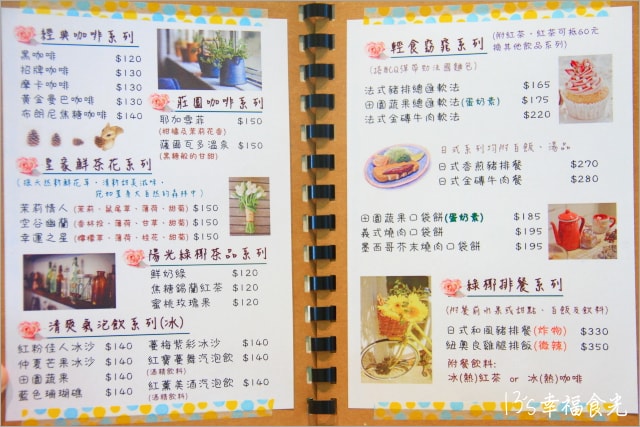 經典咖啡系列
黑咖啡 $120
招牌咖啡 $130
摩卡咖啡 $130
黃金曼巴咖啡 $130
布朗尼焦糖咖啡 $140
莊園咖啡系列
耶加雪菲 $150
(柑橘及茉莉花香)
薩爾瓦多溫泉 $150
(黑糖般的甘甜)
皇家鮮茶花系列
(採天然新鮮花草,清新甜美滋味,
花如置身大自然的森林中)
茉莉情人 (茉莉、鼠尾草、薄荷、甜菊) $150
空谷幽蘭 (香林投、薄荷、甘草、甜菊) $150
幸運之星 (檸檬草、薄荷、桂花、甜菊) $150
陽光綠榭茶品系列
鮮奶綠 $120
焦糖錫蘭紅茶 $120
蜜桃玫瑰果 $120
清爽氣泡飲系列(冰)
紅粉佳人冰沙 $140
仲夏芒果冰沙 $140
田園蔬果 $140
藍色珊瑚礁 $140
蔓梅紫彩冰沙 $140
紅寶蔓舞汽泡飲 $140
(酒精飲料)
紅薰美酒汽泡飲 $140
(酒精飲料)
輕食窈窕系列
(附紅茶,紅茶可抵60元
換其他飲品系列)
(搭配QQ彈帶勁法國麵包)
法式豬排總匯軟法 $165
田園蔬果總匯軟法(蛋奶素) $175
法式金磚牛肉軟法 $220
日式系列均附白飯、湯品
日式香煎豬排餐 $270
日式金磚牛肉餐 $280
田園蔬果口袋餅(蛋奶素) $185
義式燒肉口袋餅 $195
墨西哥芥末燒肉口袋餅 $195
綠榭排餐系列
(附餐前水果或甜點、白飯及飲料)
日式和風豬排餐(炸物) $330
紐奧良雞腿排飯(微辣) $350
附餐飲料:
冰(熱)紅茶 or 冰(熱)咖啡
13's幸福食光